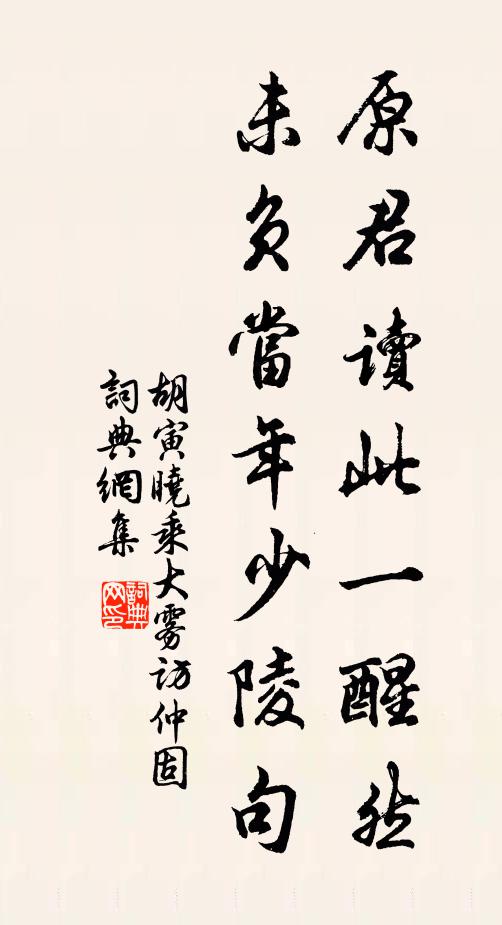 原君讀此一醒然
未負當年少陵句
胡寅曉乘大霧訪仲固
詞典網集
詞典
网印